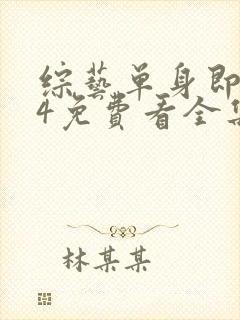 综藝单身即
4免費看全集
林某某